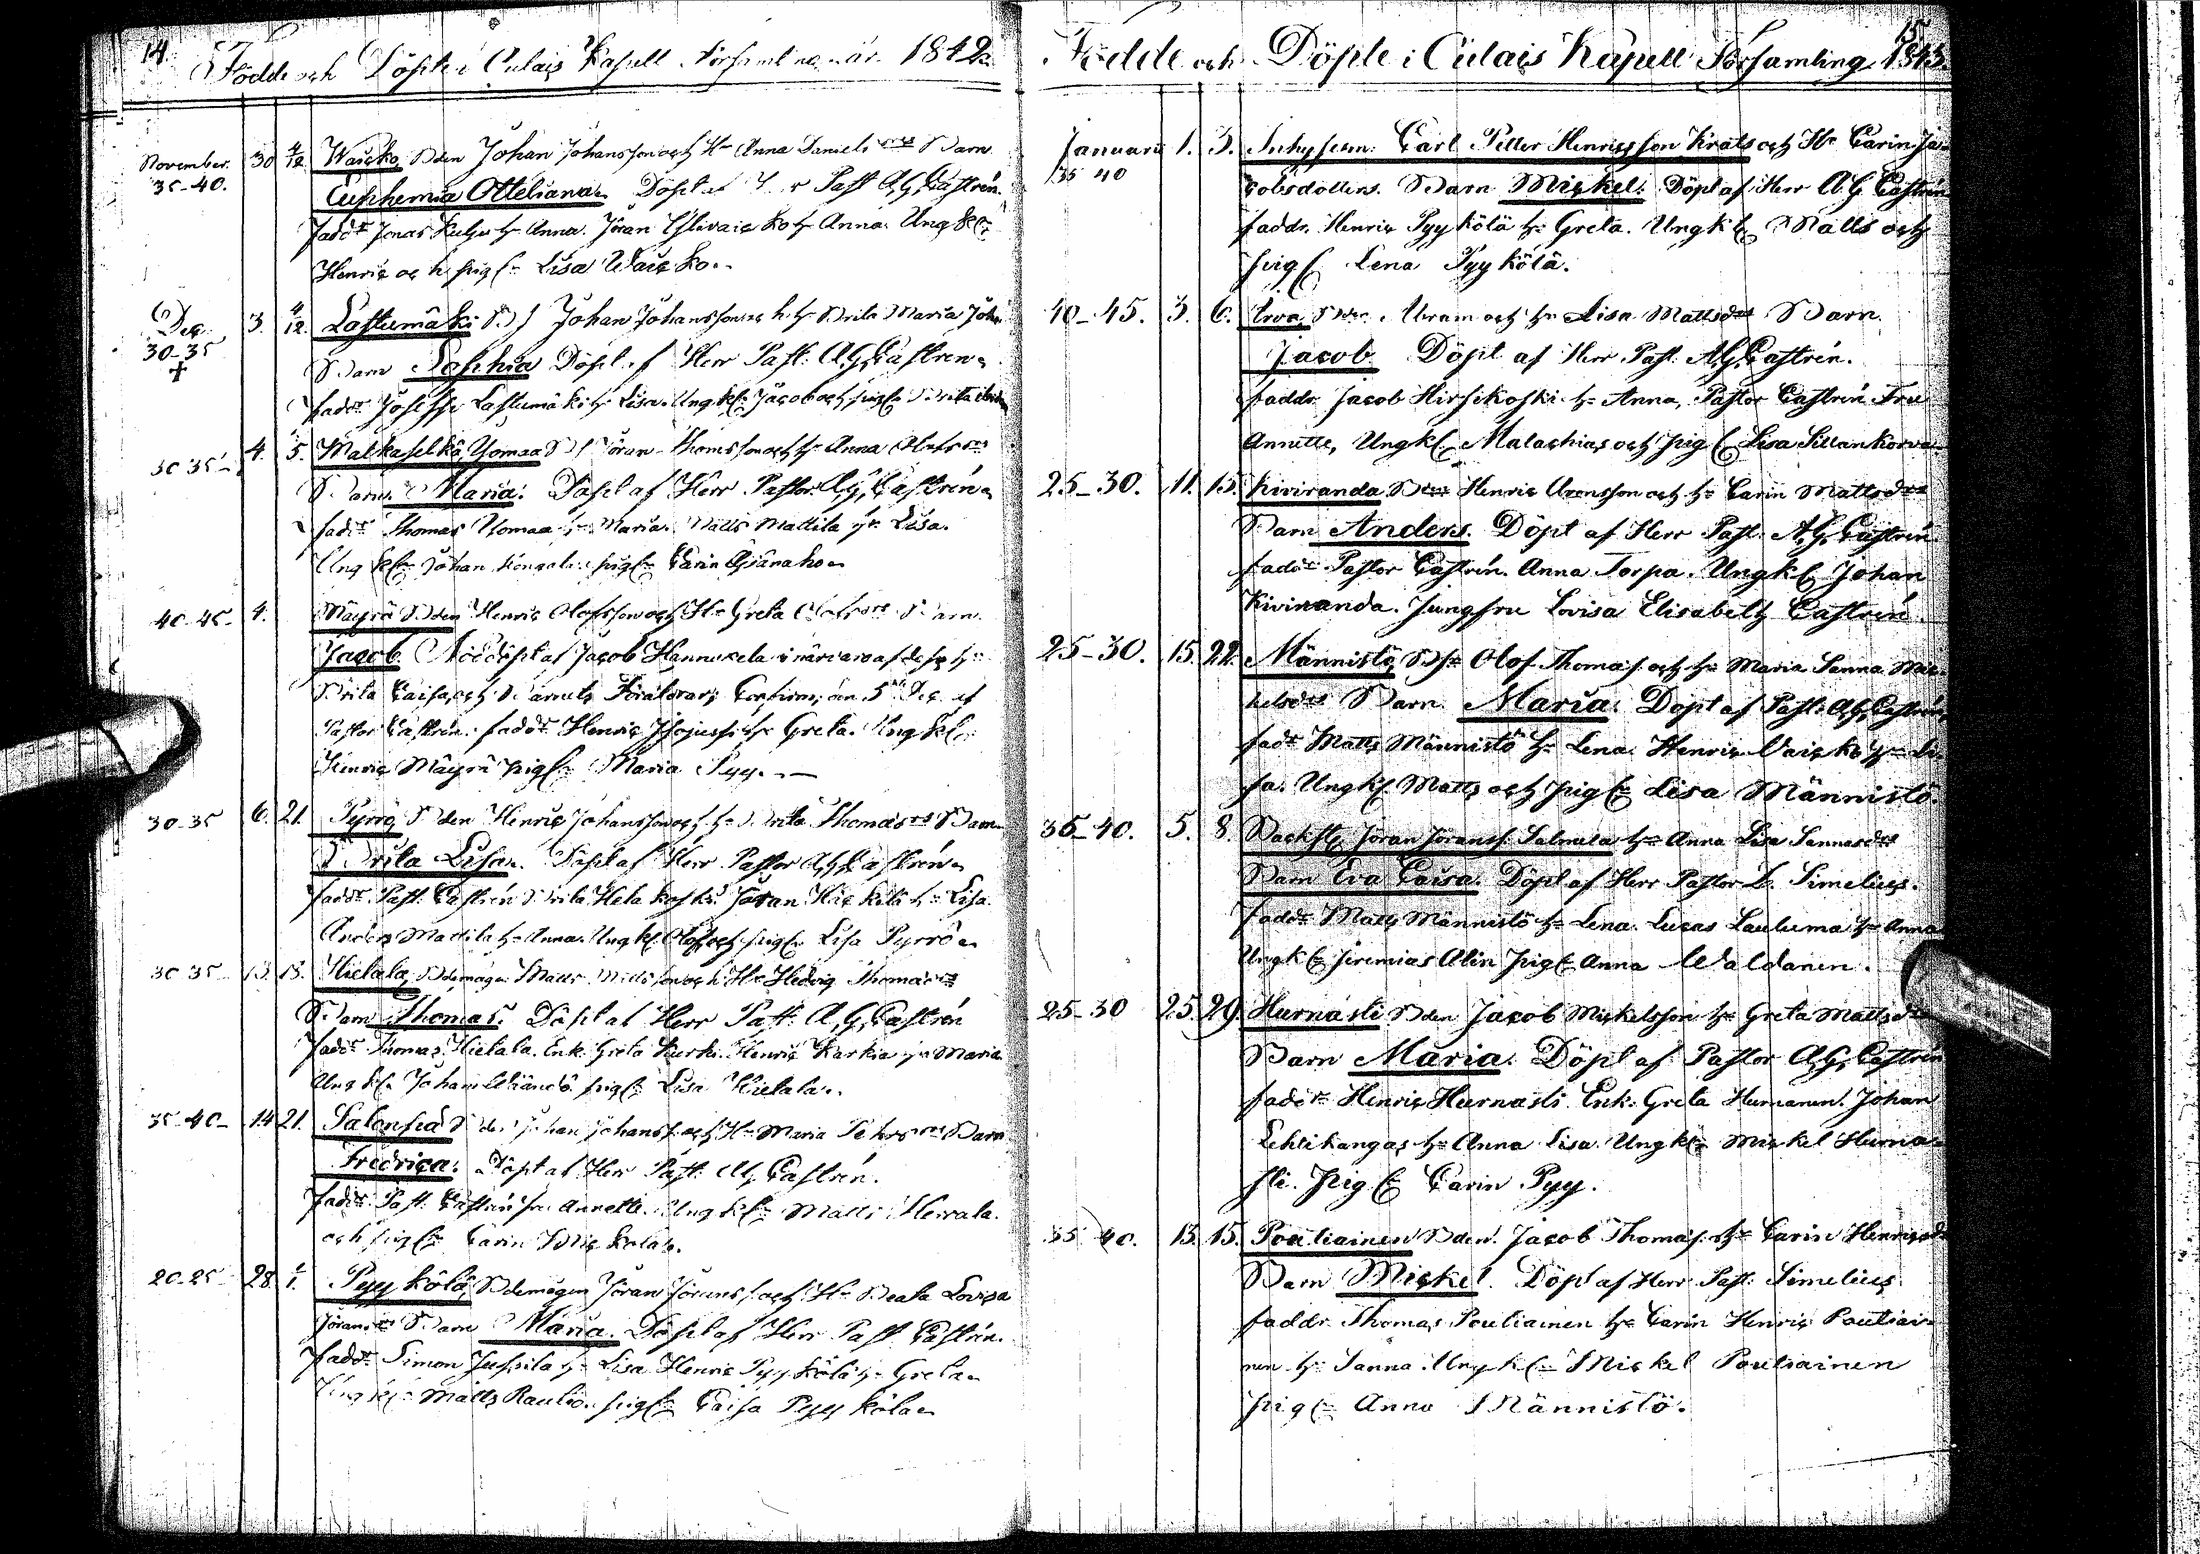 14.
Födde och Döpte i Culais Kapell Församling år 1842.
November. 30 4/12 Waicko, Bden Johan Johansson och H. Anna Daniels Barn
35-40. Euphemia Otteliana. Döpt af Past A.G. Castrén.
fadd. Jonas H. Anna. Jöran H. Anna. Ungk.
Henric och pig. Lisa Waicko.
Dec. 3. 4/12 Lastumäki Johan Johansson och H. Brita Maria Joh.
30-35 Barn Sophia Döpt af Herr Past. A.G. Castrén.
+ fadd. Joseph Lastumäki H. Lisa. Ungk. Jacob och pig. Brita
30 35 4. 5. Matkaselkä, Yomaa Jöran Thomsson och H. Anna
Barn. Maria. Döpt af Herr Pastor A.G. Castrén.
fadd. Thomas Yomaa H. Maria. Matts Mattila H. Lisa.
Ungk. Johan pig. Carin
40-45. 4. Mäyrä Bden Henric Olofsson och H. Greta Barn.
Jacob. Nöddöpt af Jacob Hannukela i närvaro af dess H.
Brita Caisa, och Barnets Föräldrar; Confirm; den 5 Dec. af
Pastor Castrén. fadd. Henric H. Greta. Ungk.
Henric Mäyrä pig. Maria Pyy.
30-35 6. 21. Pyrrö, Bden Henric Johansson och H. Brita Thomasd. Barn
Brita Lisa. Döpt af Herr Pastor A.G. Castrén.
fadd. Past. Castrén Brita Helakoski. Jöran H. Lisa.
Anders Mattila H. Anna. Ungk. Olof och pig. Lisa Pyrrö.
30 35 13. 18. Hietala, Bdemågen Matts Mattsson och H. Hedvig Thomasd.
Barn Thomas. Döpt af Herr Past. A.G. Castrén
fadd. Thomas Hietala. Enk. Greta Kurki. Henric Karkia H. Maria
Ungk. Johan pig. Lisa Hietala.
35-40 14 21. Salonpää Bden Johan Johanss. och H. Maria Barn
Fredrica. Döpt af Herr Past. A.G. Castrén.
fadd. Past. Castrén fru Annette. Ungk. Matts
och pig. Carin
20-25 28 1/1. Pyykölä, Bdemågen Jöran Jöranss. och H. Beata Lovisa
Jöransd. Barn Maria. Döpt af Herr Past. Castrén.
fadd. Simon Jussila H. Lisa Henric Pyykölä H. Greta
Ungk. Matts Raulio. pig. Caisa Pyykölä
15.
Födde och Döpte i Culais Kapell Församling 1843.
Januari 1. 3. Inhysem. Carl Petter Henricsson Krats och H. Carin Ja-
35 40 cobsdotters. Barn Mickel. Döpt af Herr A.G. Castrén
faddr. Henric Pyykölä H. Greta. Ungk. Matts och
pig. Lena Pyykölä.
40-45. 3. 6. Erva, Abram och H. Lisa Mattsd. Barn.
Jacob Döpt af Herr Past. A.G. Castrén.
faddr. Jacob Hirsikoski H. Anna, Pastor Castrén Fru
Annette, Ungk. Malachias och pig. Lisa Sillankorva
25-30. 11. 15. Kiviranda Henric och H. Carin Mattsd.
Barn Anders. Döpt af Herr Past. A.G. Castrén.
fadd. Pastor Castrén. Anna Torpa. Ungk. Johan
Kiviranda. Jungfru Lovisa Elisabeth Castrén
25-30. 15. 22. Männistö, Olof Thomas. och H. Maria Sanna Mic-
kelsd. Barn. Maria. Döpt af Past. A.G. Castrén,
fadd. Matts Männistö H. Lena. Henric Vaicko H. Li-
sa. Ungk. Matts och pig. Lisa Männistö.
35-40. 5. 8. Backst. Jöran Jöranss. Salmela H. Anna Lisa
Barn Eva Caisa. Döpt af Herr Pastor L. Simelius.
fadd. Matts Männistö H. Lena. Lucas Lauluma H. Anna
Ungk. Jeremias Alin pig. Anna Waldanen.
25-30 25. 29. Hurnasti Bden Jacob Mickelsson H. Greta Mattsd.
Barn Maria. Döpt af Pastor A.G. Castrén
fadd. Henric Hurnasti. Enk. Greta Hurnanen. Johan
Lehtikangas H. Anna Lisa. Ungk. Mickel Hurna-
sti. pig. Carin Pyy.
35 40. 13. 15. Poutiainen Bden. Jacob Thomas. H. Carin Henricsd.
Barn Mickel. Döpt af Herr Past. Simelius
faddr. Thomas Poutiainen H. Carin Henric Poutiai-
nen H. Sanna. Ungk. Mickel Poutiainen
pig. Anna Männistö.